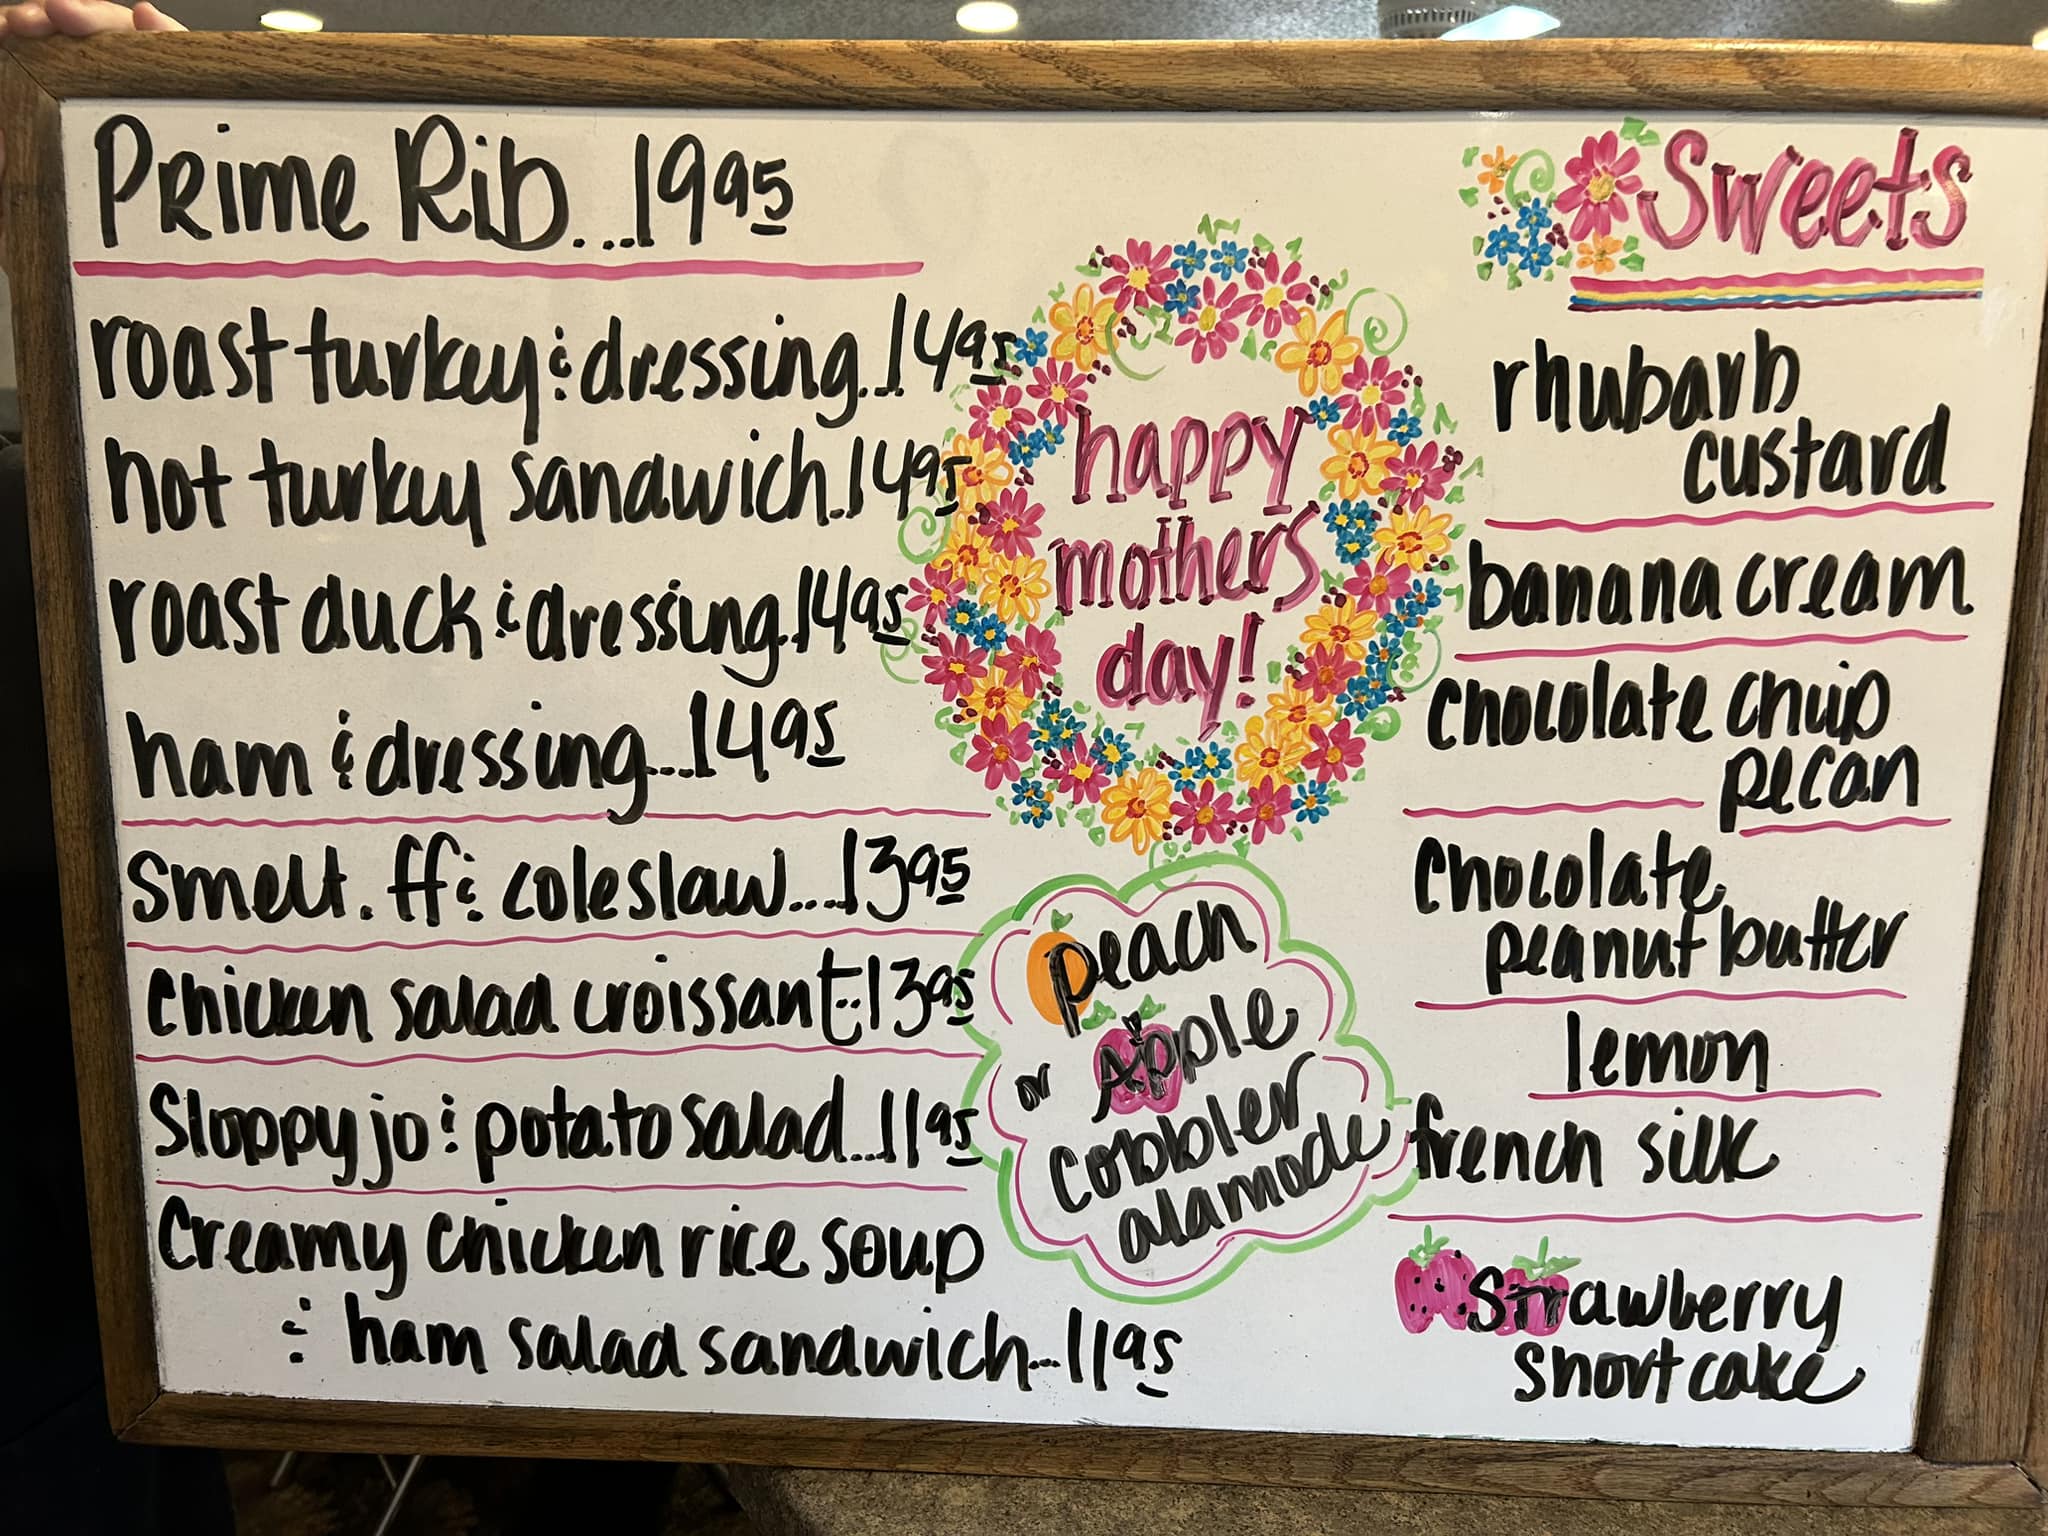 Prime Rib...19 95
roast turkey & dressing...14 95
hot turkey sandwich..14 95
roast duck & dressing..14 95
ham & dressing....14 95
smelt. ff & coleslaw....13 95
chicken salad croissant..13 95
Sloppy jo & potato salad...11 95
Creamy chicken rice soup
& ham salad sandwich...11 95
happy
mothers
day!
peach
or Apple
cobbler
alamode
Sweets
rhubarb
custard
banana cream
chocolate chip
pecan
chocolate
peanut butter
lemon
french silk
strawberry
shortcake